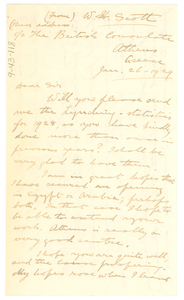 (From) W. H. Scott
(Permanent address)
c/o The British Consulate
Athens
Greece
Jan. 26-1929
9-43-118
Dear Sir
Will you please send
me the lynching statistics
for 1928 as you have kindly
done more than once in
previous years? I shall be
very glad to have them.
I am in great hopes that
I have secured an opening
in Egypt or Arabia, perhaps
both, in that case I hope to
be able to extend my
work. Athens is really a
very good centre.
I hope you are quite well
and the cause prospering.
My hopes rose when I